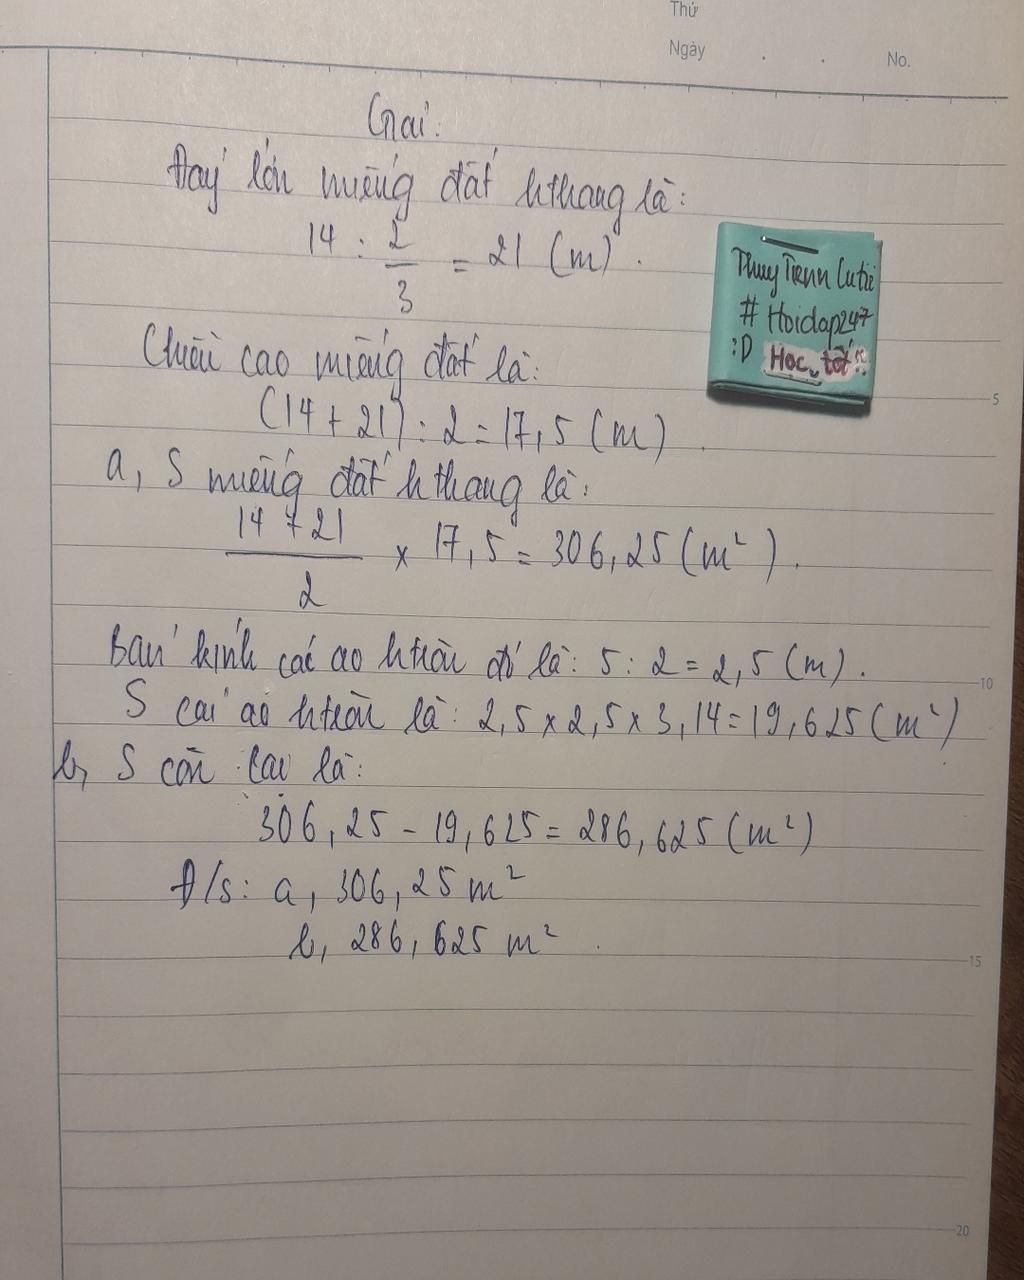 Thứ
Ngày . . No.
Giải:
Đáy lớn miếng đất hthang là:
14 : 2/3 = 21 (m).
Chiều cao miếng đất là:
(14 + 21) : 2 = 17,5 (m)
a, S miếng đất hthang là:
(14 + 21)/2 × 17,5 = 306,25 (m²).
Bán kính cái ao htròn đó là: 5 : 2 = 2,5 (m).
S cái ao htròn là: 2,5 × 2,5 × 3,14 = 19,625 (m²)
b, S còn lại là:
306,25 - 19,625 = 286,625 (m²)
Đ/s: a, 306,25 m²
b, 286,625 m².
Thuy Tienn Cutii
# Hoidap247
:D Học tốt !!
5
10
15
20